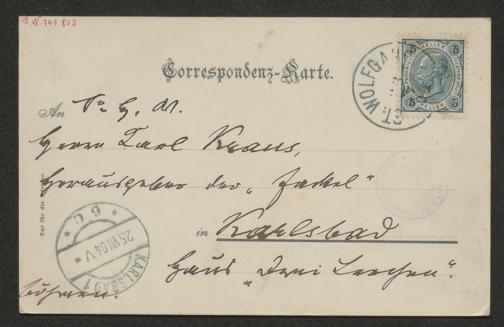 I.N.141.852
5 HELLER 5
5 5
ST. WOLFGA
Correspondenz-Karte.
An Sr. H. W.
Herrn Karl Kraus,
Herausgeber der „Fackel"
in Karlsbad
Haus „Drei Lerchen".
Böhmen.
Nur für die
* 6 C *
25 VII 04 V
KARLSBAD 1